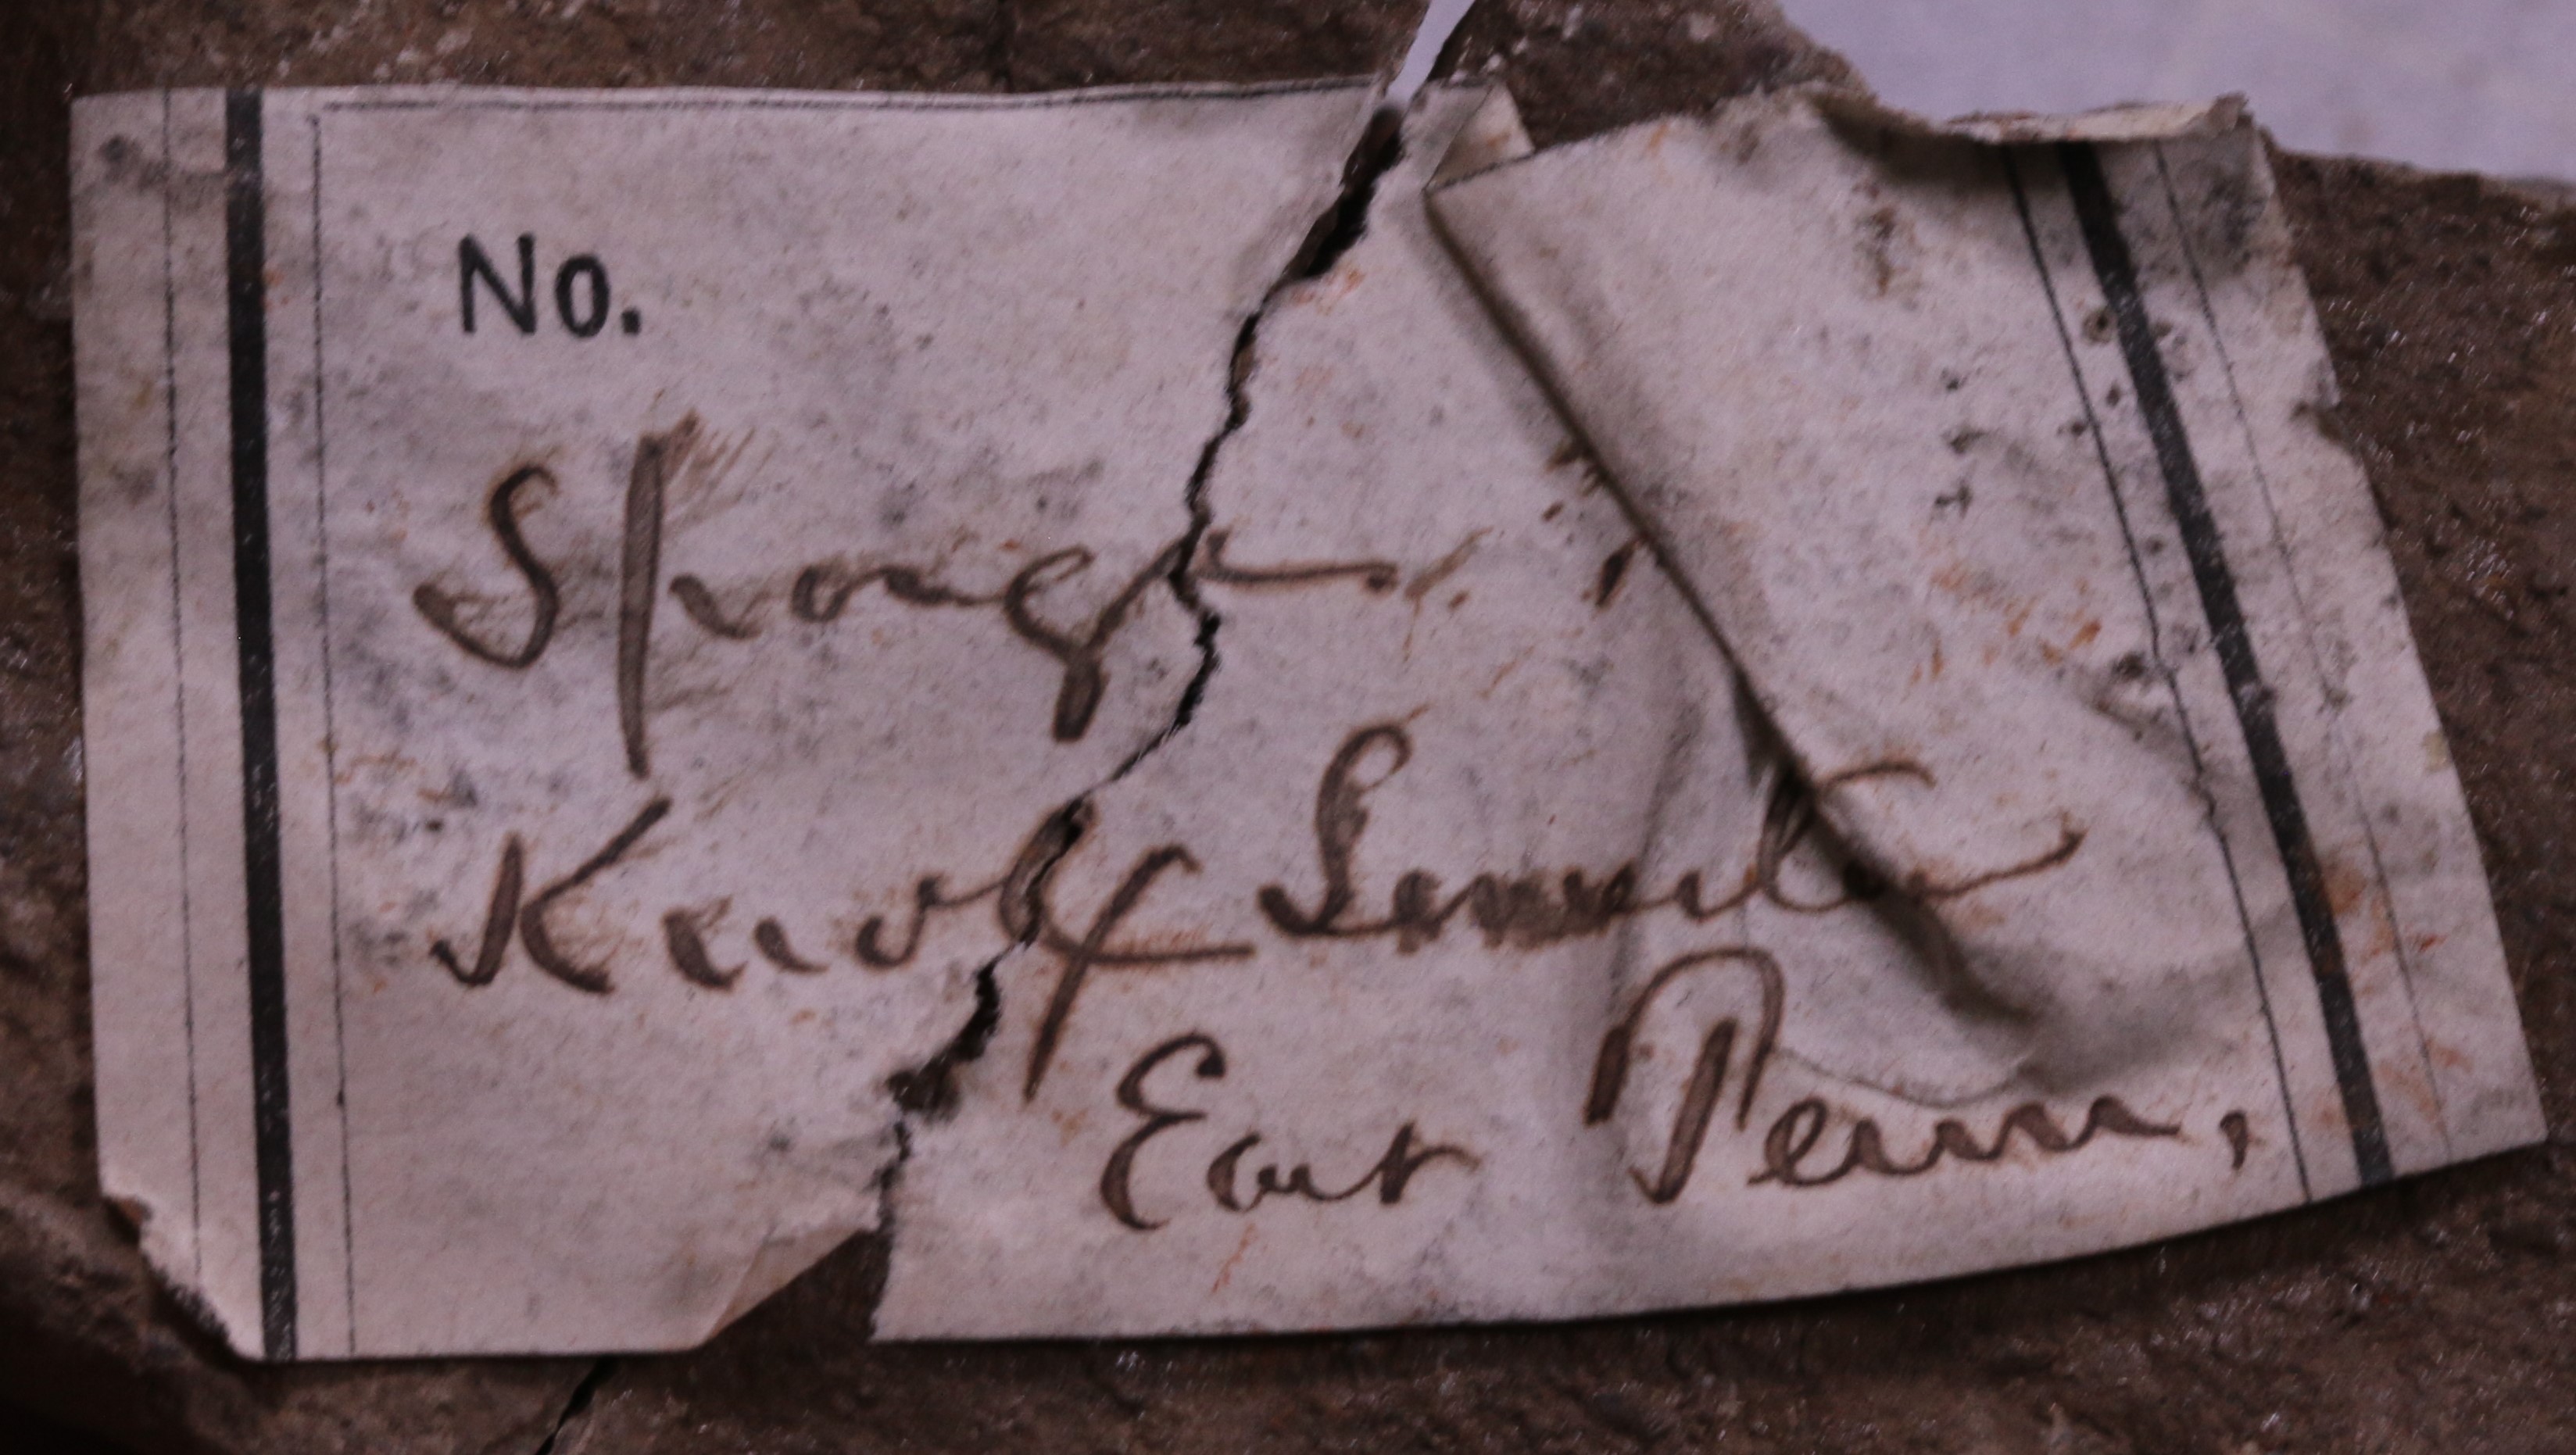 No.
Sponge.
Knox Limestone
East Tenn,